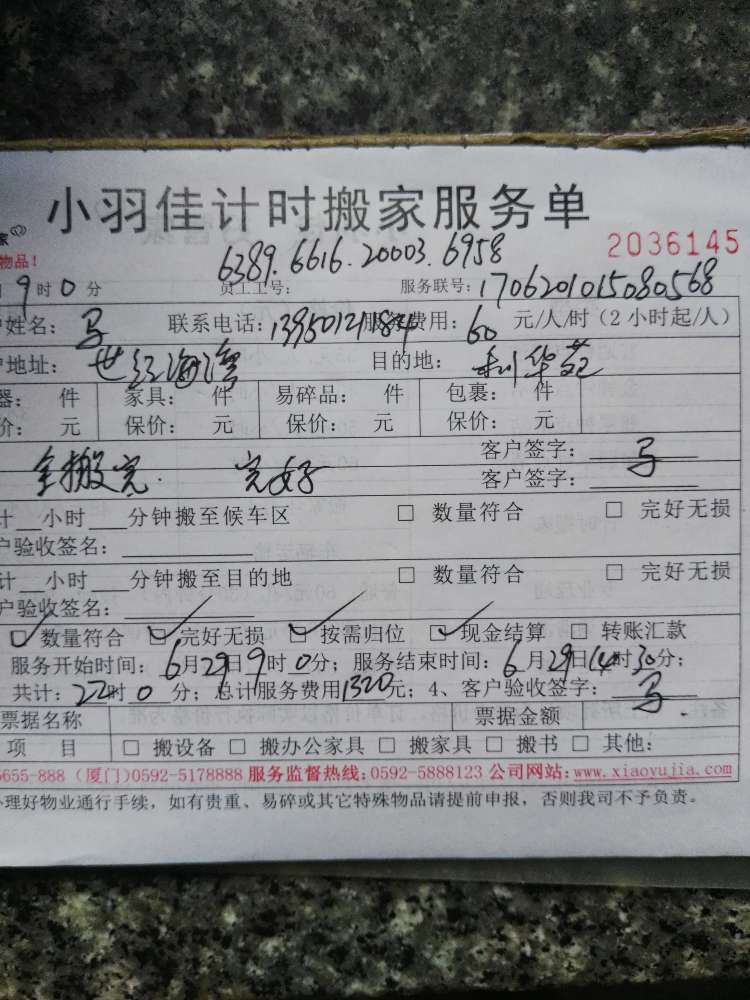 小羽佳计时搬家服务单
家
2036145
物品！
6389.6616.20003.6958
9时0分 员工工号： 服务联号：1706201015080568
户姓名：马 联系电话：13950121184 服务费用：60 元/人/时（2小时起/人）
户地址：世纪海湾 目的地：利华苑
器： 件 家具： 件 易碎品： 件 包裹： 件
价： 元 保价： 元 保价： 元 保价： 元
客户签字：马
全搬完. 完好 客户签字：
计__小时___分钟搬至候车区 □ 数量符合 □ 完好无损
户验收签名：
计__小时___分钟搬至目的地 □ 数量符合 □ 完好无损
户验收签名：
☑数量符合 ☑完好无损 ☑按需归位 ☑现金结算 □ 转账汇款
服务开始时间：6月29日9时0分；服务结束时间：6月29日14时30分；
共计：22时0分；总计服务费用1320元；4、客户验收签字：马
票据名称 票据金额
项 目 □ 搬设备 □ 搬办公家具 □ 搬家具 □ 搬书 □ 其他：
5655-888（厦门）0592-5178888 服务监督热线：0592-5888123 公司网站：www.xiaoyujia.com
办理好物业通行手续，如有贵重、易碎或其它特殊物品请提前申报，否则我司不予负责。